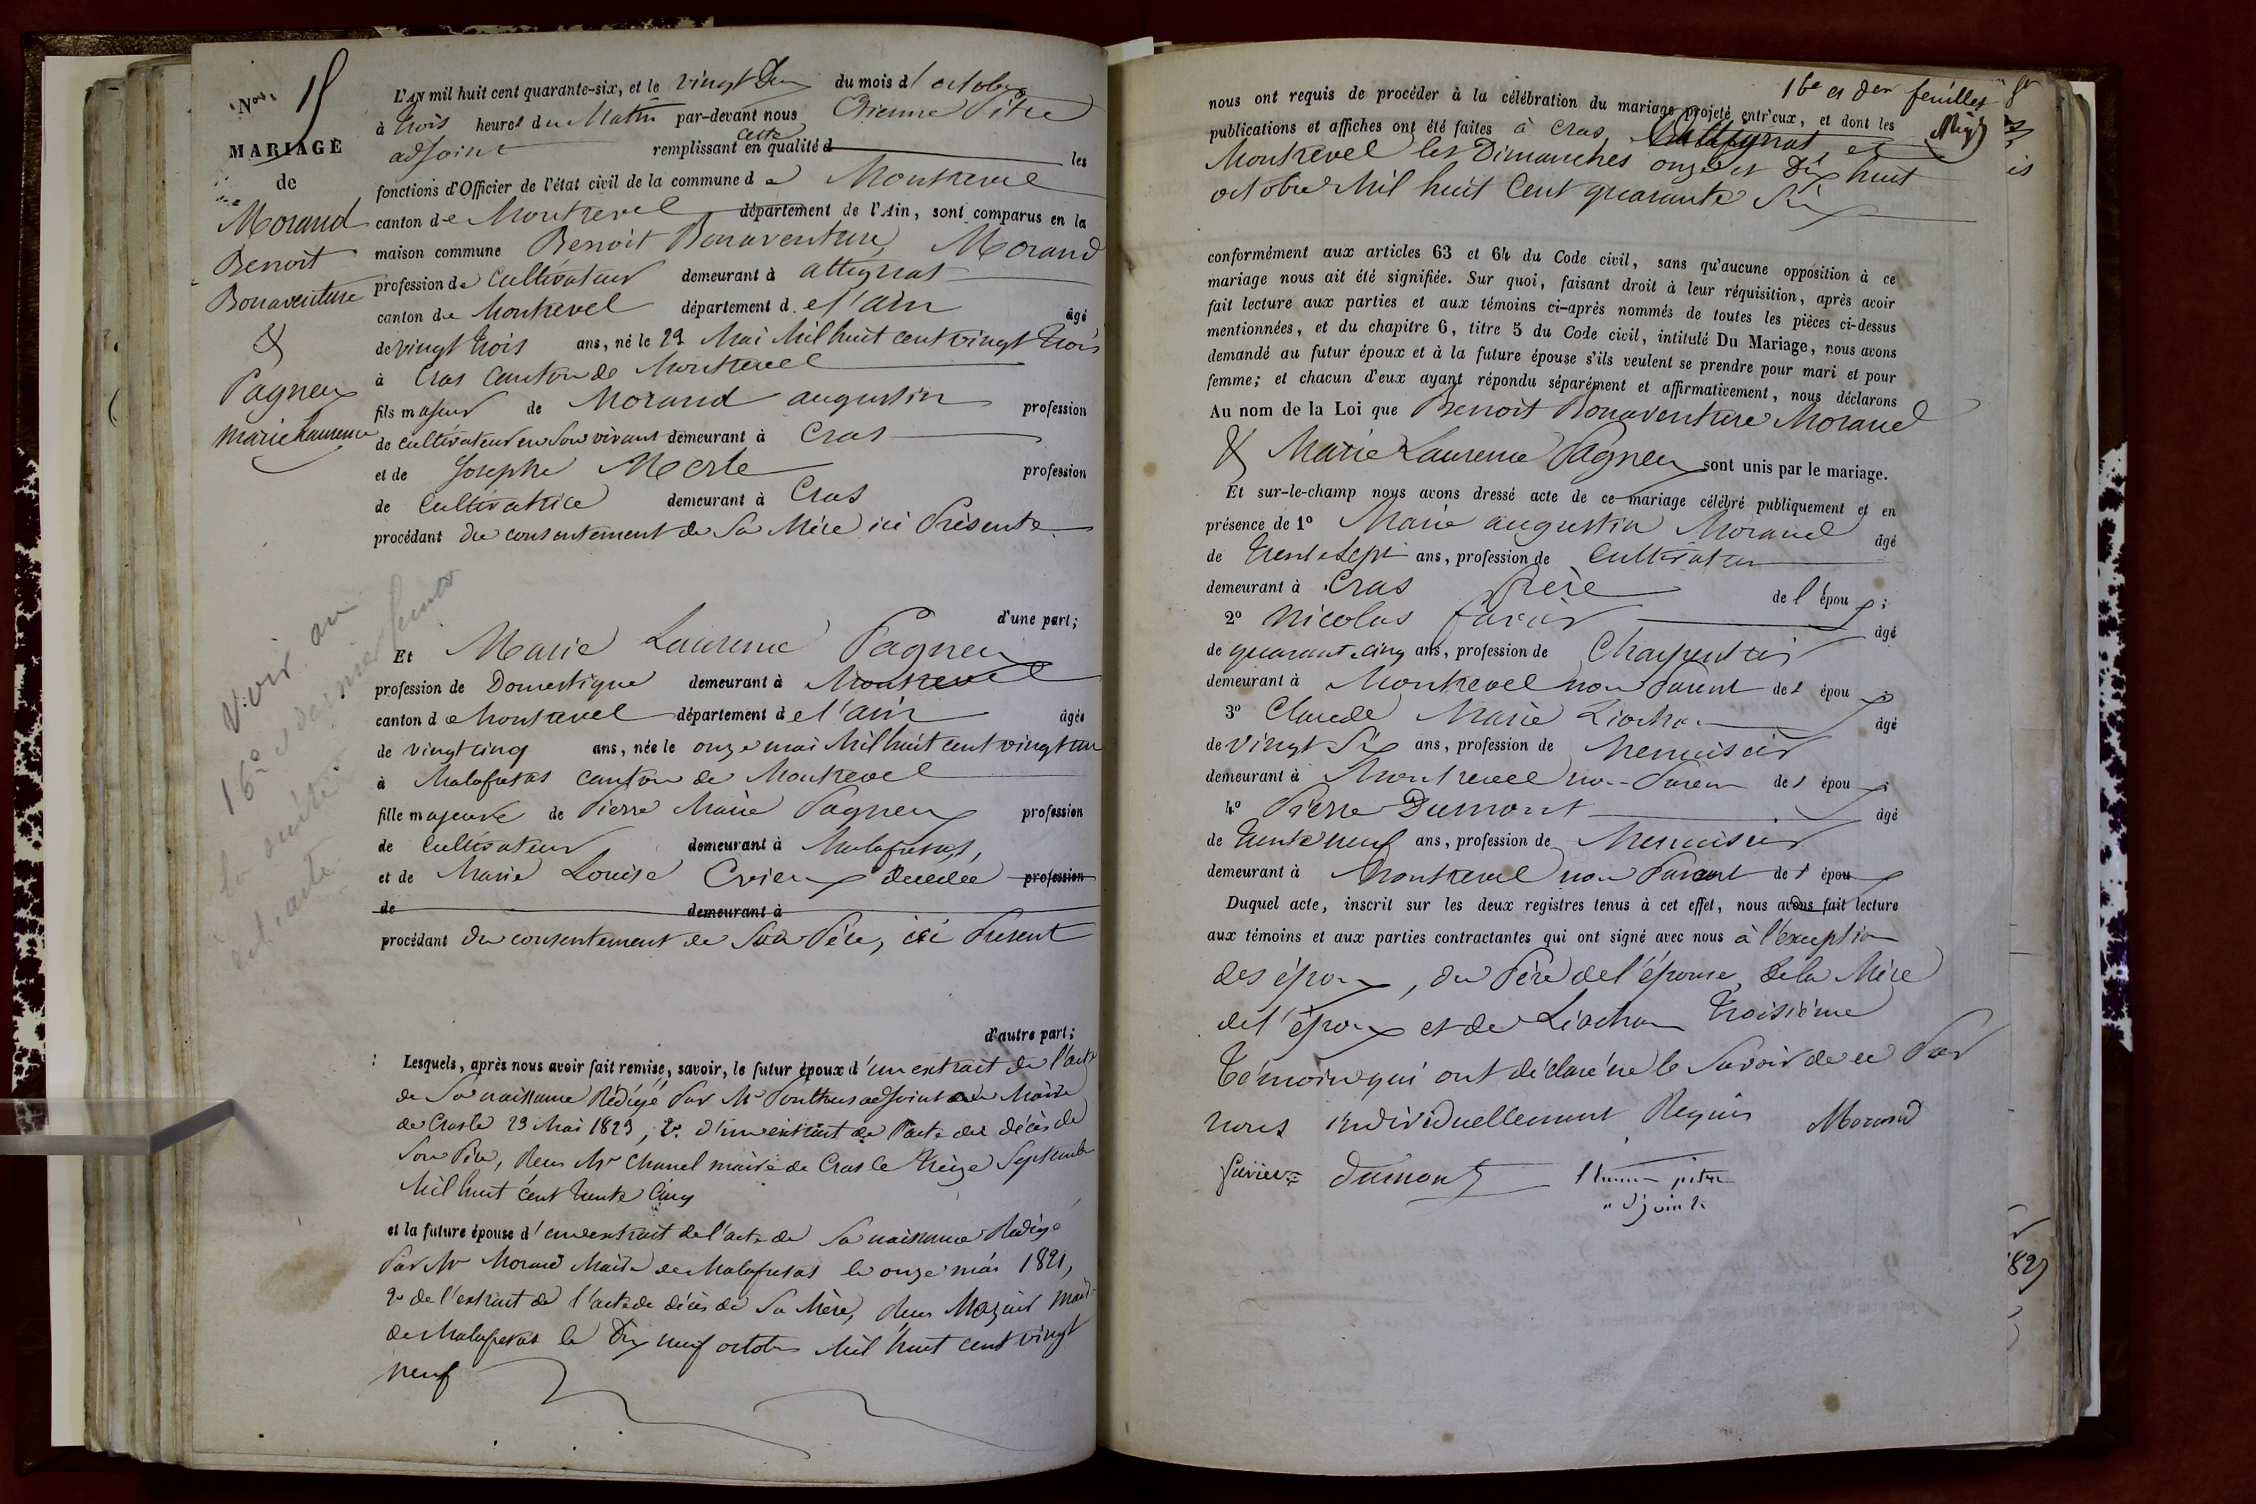 Nos. 15
MARIAGE
de
Morand
Benoit
Bonaventure
&
Pagneux
Marie Laurence
voir au
16e dernier feuillet
la suite
de l'acte
L'AN mil huit cent quarante-six, et le vingt du mois d'octobre
à trois heures du Matin par-devant nous Etienne Pitre
adjoint remplissant en cette qualité d les
fonctions d'Officier de l'état civil de la commune de Montrevel
canton de Montrevel département de l'Ain, sont comparus en la
maison commune Benoit Bonaventure Morand
profession de Cultivateur demeurant à attignat
canton de Montrevel département de l'ain âgé
de vingt trois ans, né le 29 Mai Mil huit cent vingt trois
à Cras canton de Montrevel
fils majeur de Morand augustin profession
de cultivateur en son vivant demeurant à Cras
et de Josephe Merle profession
de Cultivatrice demeurant à Cras
procédant du consentement de Sa Mère ici Présente
d'une part;
Et Marie Laurence Pagneux
profession de Domestique demeurant à Montrevel
canton de Montrevel département de l'ain âgée
de vingt cinq ans, née le onze mai Mil huit cent vingt un
à Malafretas canton de Montrevel
fille majeure de Pierre Marie Pagneux profession
de Cultivateur demeurant à Malafretas,
et de Marie Louise decedée profession
de demeurant à
procédant du consentement de Son Père, ici Présent
d'autre part;
Lesquels, après nous avoir fait remise, savoir, le futur époux d'un extrait de l'acte
de Sa naissance Rédigé Par Mr adjoint Maire
de Cras le 29 Mai 1823, 2° d'un extrait de l'acte de décès de
Son Père, Reçu Mr Chanel maire de Cras le treize Septembre
Mil huit cent trente Cinq
et la future épouse d'un extrait de l'acte de Sa naissance Rédigé
Par Mr Morand Maire de Malafretas le onze mai 1821,
2° de l'extrait de l'acte de décès de Sa Mère, Reçu Mazuir Maire
de Malafretas le Dix neuf octobre Mil huit cent vingt
neuf
16e et der feuillet
nous ont requis de procéder à la célébration du mariage projeté entr'eux, et dont les
publications et affiches ont été faites à Cras, attignat, et
Montrevel les Dimanches onze et Dix huit
octobre Mil huit Cent quarante Six
conformément aux articles 63 et 64 du Code civil, sans qu'aucune opposition à ce
mariage nous ait été signifiée. Sur quoi, faisant droit à leur réquisition, après avoir
fait lecture aux parties et aux témoins ci-après nommés de toutes les pièces ci-dessus
mentionnées, et du chapitre 6, titre 5 du Code civil, intitulé Du Mariage, nous avons
demandé au futur époux et à la future épouse s'ils veulent se prendre pour mari et pour
femme; et chacun d'eux ayant répondu séparément et affirmativement, nous déclarons
Au nom de la Loi que Benoit Bonaventure Morand
& Marie Laurence Pagneux sont unis par le mariage.
Et sur-le-champ nous avons dressé acte de ce mariage célébré publiquement et en
présence de 1° Marie augustin Morand âgé
de trente Sept ans, profession de Cultivateur
demeurant à Cras frère de l'époux;
2° Nicolas âgé
de quarante cinq ans, profession de Charpentier
demeurant à Montrevel non Parent de l'époux;
3° Claude Marie Liochon âgé
de vingt Six ans, profession de Menuisier
demeurant à Montrevel non Parent de l'époux;
4° Pierre Dumont âgé
de trente neuf ans, profession de Menuisier
demeurant à Montrevel non Parent de l'époux
Duquel acte, inscrit sur les deux registres tenus à cet effet, nous avons fait lecture
aux témoins et aux parties contractantes qui ont signé avec nous à l'exception
des époux, du Père de l'épouse, de la Mère
de l'époux et de Liochon troisième
témoin qui ont déclaré ne le Savoir de ce Par
nous individuellement Requis Morand
Dumont Etienne pitre
adjoint